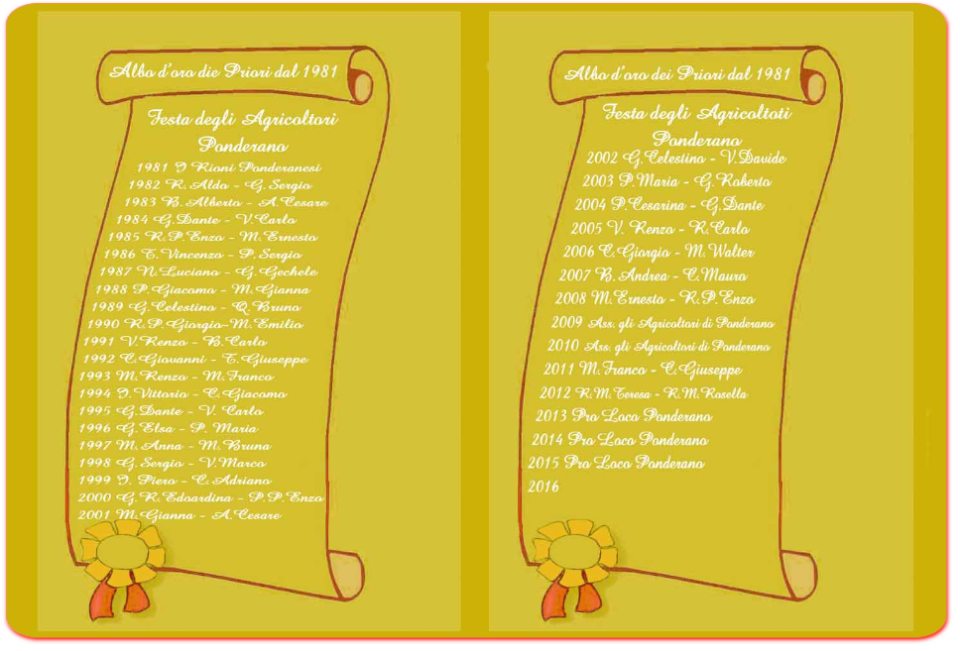 Albo d'oro die Priori dal 1981
Festa degli Agricoltori
Ponderano
1981 I Rioni Ponderanesi
1982 R. Aldo - G. Sergio
1983 B. Alberto - A. Cesare
1984 G. Dante - V. Carlo
1985 R. P. Enzo - M. Ernesto
1986 T. Vincenzo - P. Sergio
1987 N. Luciano - G. Gechele
1988 P. Giacomo - M. Gianna
1989 G. Celestino - Q. Bruno
1990 R. P. Giorgio-M. Emilio
1991 V. Renzo - B. Carlo
1992 C. Giovanni - T. Giuseppe
1993 M. Renzo - M. Franco
1994 I. Vittorio - C. Giacomo
1995 G. Dante - V. Carlo
1996 G. Elsa - P. Maria
1997 M. Anna - M. Bruna
1998 G. Sergio - V. Marco
1999 I. Piero - C. Adriano
2000 G. R. Edoardina - P. P. Enzo
2001 M. Gianna - A. Cesare
Albo d'oro dei Priori dal 1981
Festa degli Agricoltoti
Ponderano
2002 G. Celestino - V. Davide
2003 P. Maria - G. Roberto
2004 P. Cesarina - G. Dante
2005 V. Renzo - R. Carlo
2006 C. Giorgio - M. Walter
2007 B. Andrea - C. Mauro
2008 M. Ernesto - R. P. Enzo
2009 Ass. gli Agricoltori di Ponderano
2010 Ass. gli Agricoltori di Ponderano
2011 M. Franco - C. Giuseppe
2012 R. M. Teresa - R. M. Rosella
2013 Pro Loco Ponderano
2014 Pro Loco Ponderano
2015 Pro Loco Ponderano
2016